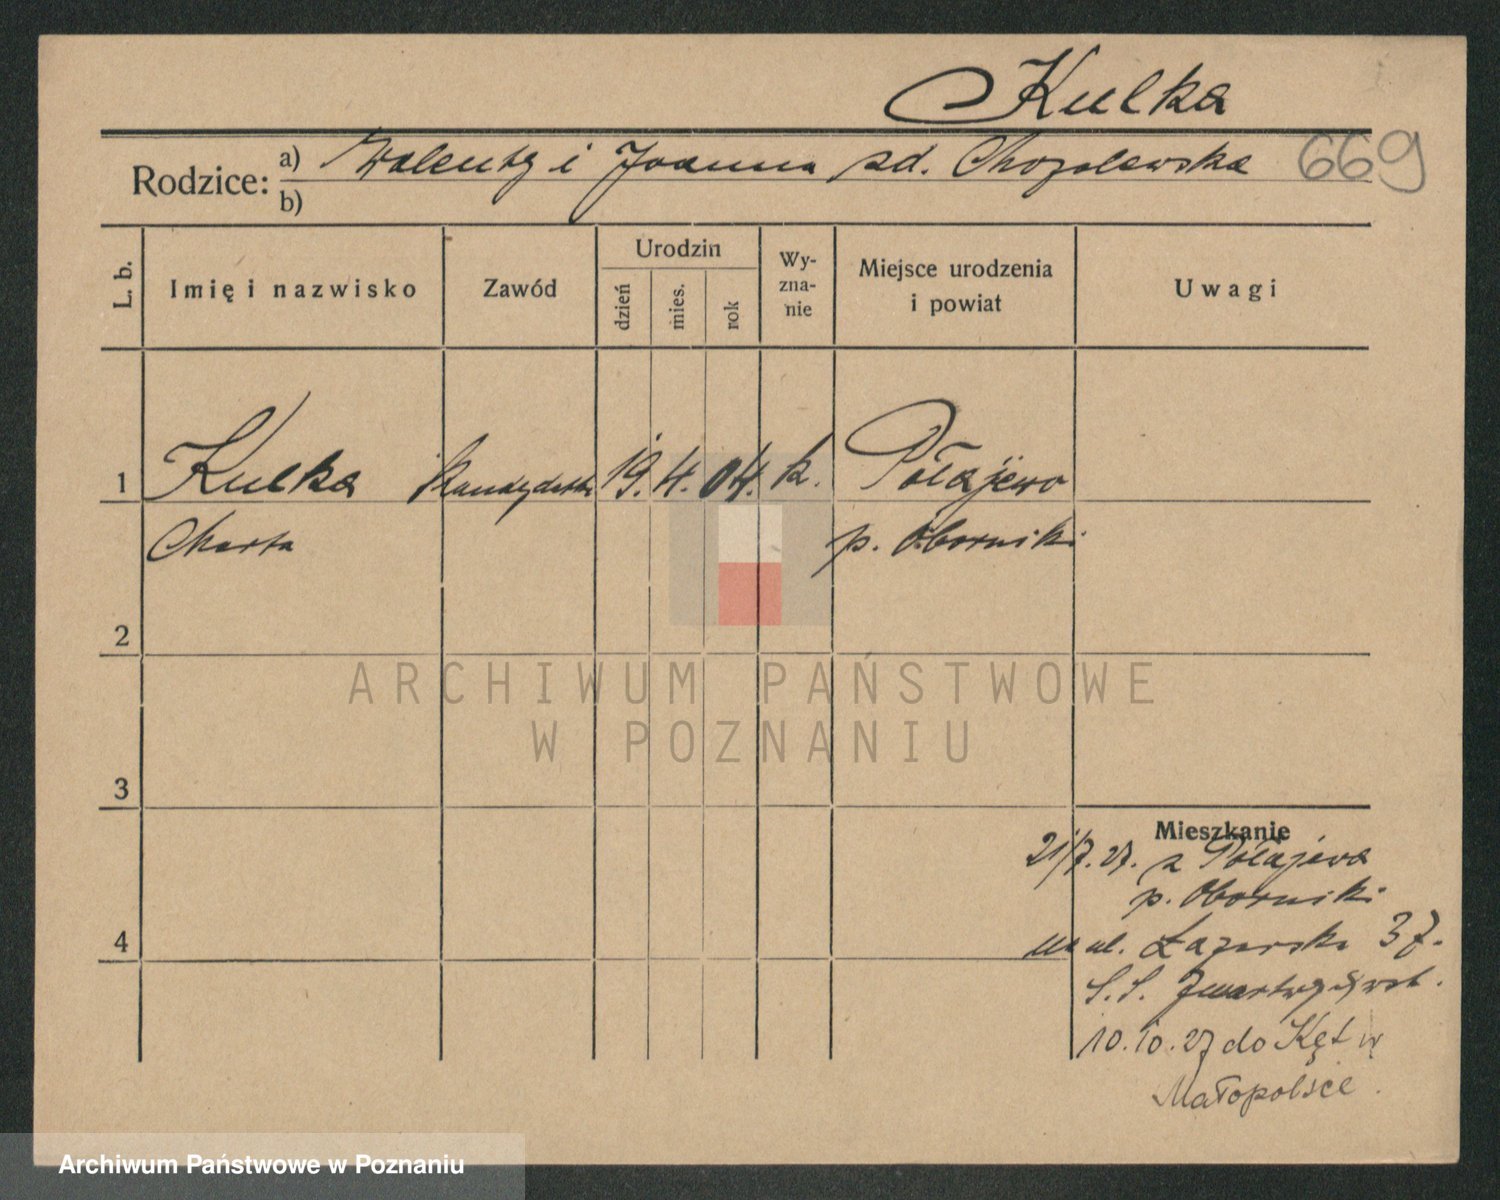 Kulka
Rodzice: a) Walenty i Joanna zd. Chojolewska 669
b)
L. b. Imię i nazwisko Zawód Urodzin dzień mies. rok Wy-zna-nie Miejsce urodzenia i powiat Uwagi
1 Kulka kandydatka 19. 4. 04. k. Połajewo
Marta p. Oborniki
2
ARCHIWUM PAŃSTWOWE
W POZNANIU
3
Mieszkanie
21/7.27. z Połajewa
p. Oborniki
4 na ul. Łazarska 37.
S.S. Zmartwychwst.
10.10.27 do Kęt w
Małopolsce.
Archiwum Państwowe w Poznaniu